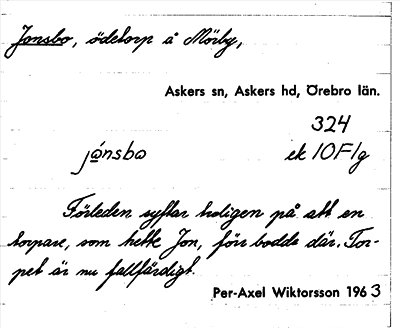 Jonsbo, ödetorp å Mörby,
Askers sn, Askers hd, Örebro län.
324
jónsbo ek 10F1g
Förleden syftar troligen på att en
torpare, som hette Jon, förr bodde där. Tor-
pet är nu fallfärdigt.
Per-Axel Wiktorsson 1963